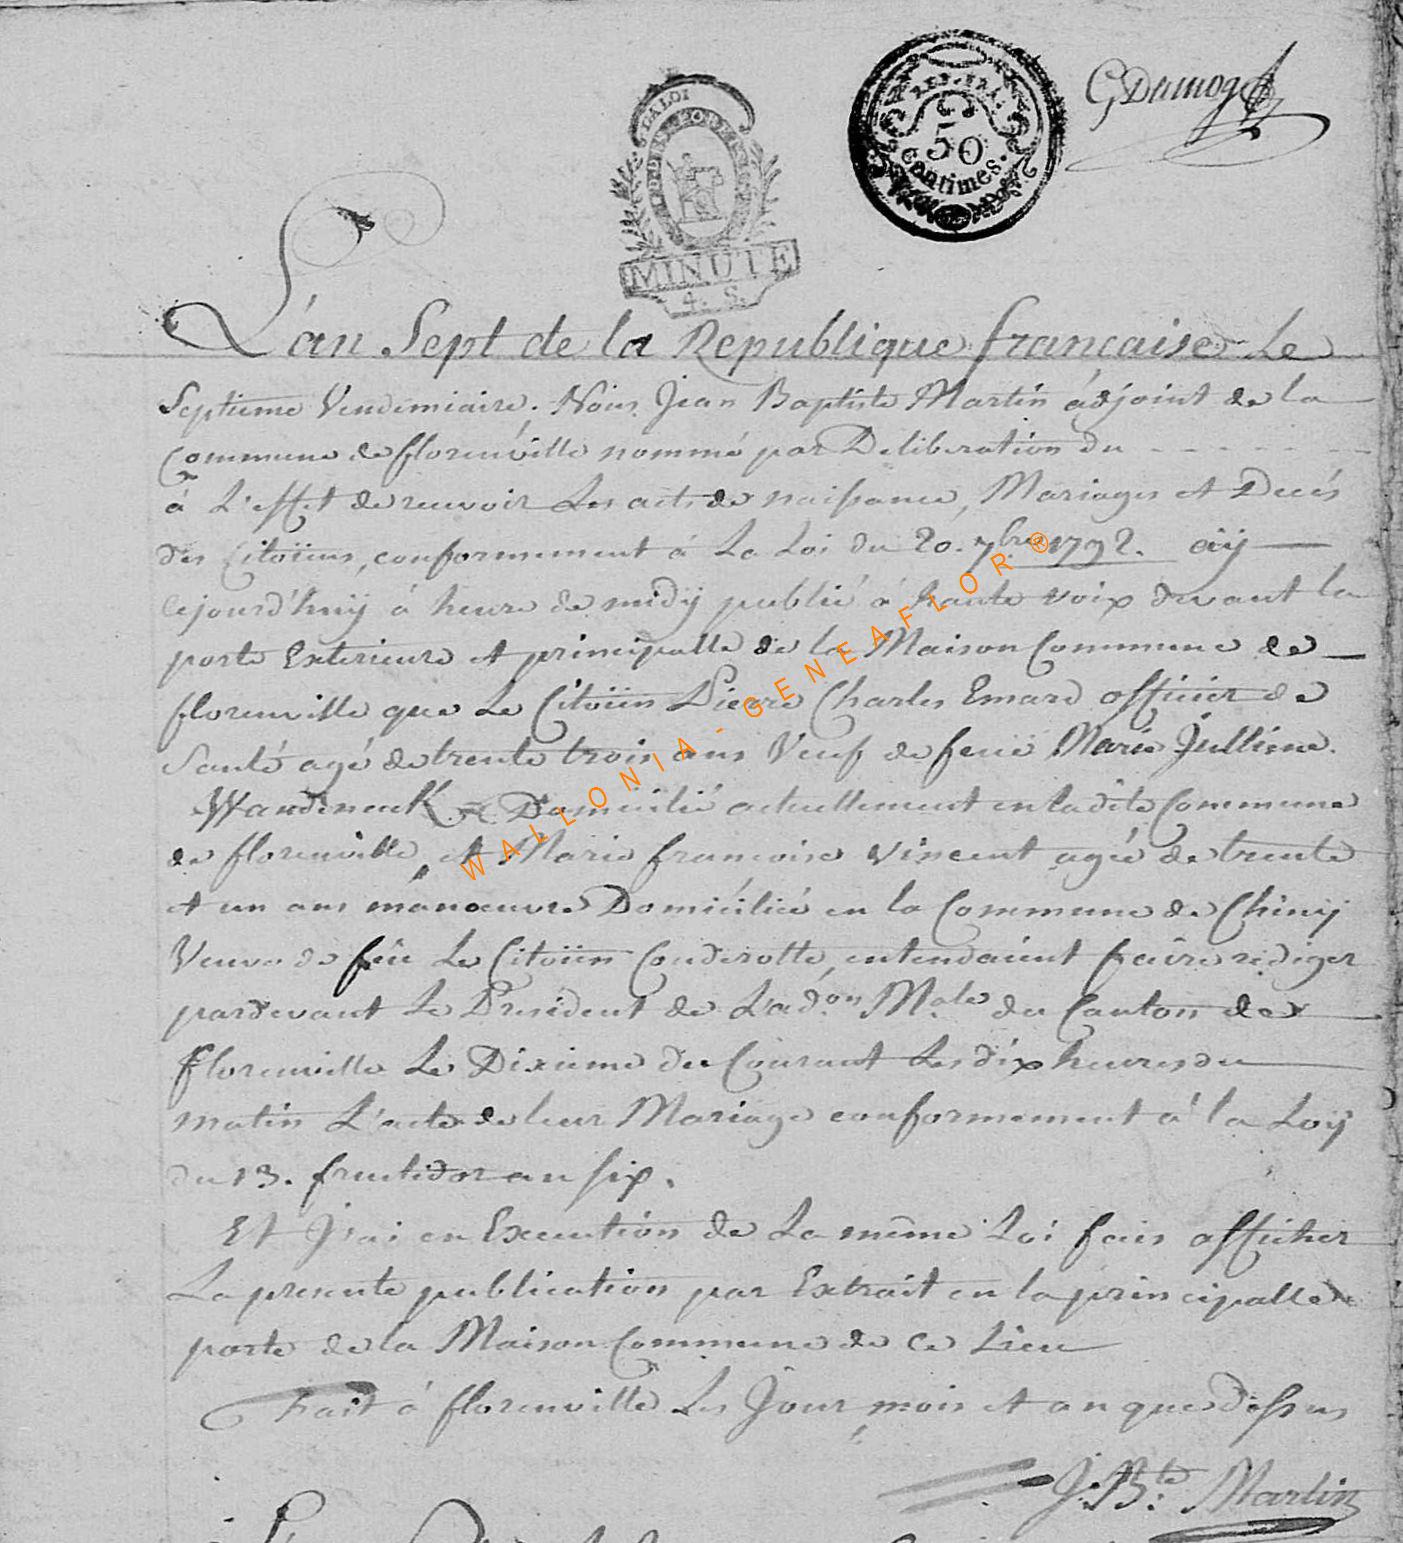 LA LOI
REP. FRA.
50
centimes.
GDamog
MINUTE
4. S.
L'an Sept de la Republique francaise Le
Septieme Vendemiaire. Nous Jean Baptiste Martin adjoint de la
Commune de florenville nommé par Deliberation du - - - - - -
à L'effet de recevoir Les acts de naissance, Mariages et Decés
des Citoïens, conformement á La Loi du 20. 7bre 1792. aÿ
cejourd'huÿ á heure de midÿ publié á haute voix devant la
porte Exterieure et principalle de la Maison Commune de
florenville que Le Citoïen Pierre Charles Emard officier de
Santé agé de trente trois ans Veuf de feue Marie Jullienne.
Wandeneck Domicilié actuellement en ladite Commune
de florenville, et Marie francoise Vincent agée de trente
et un ans manoeuvre Domiciliée en la Commune de Chinÿ
Veuve de feu Le Citoïen Couderotte, entendaient faire rediger
pardevant Le President de L'ad.on M.ale du Canton de
florenville Le Dixieme du Courant Les dix heures du
matin L'acte de leur Mariage conformement á la Loÿ
du 13. fructidor an six.
Et J'ai en Execution de La même Loi fais afficher
La presente publication par Extrait en la principalle
porte de la Maison Commune de ce Lieu
Fait á florenville Les Jour, mois et an que dessus
J: B:te Martin
WALLONIA - GENEAFLOR ®